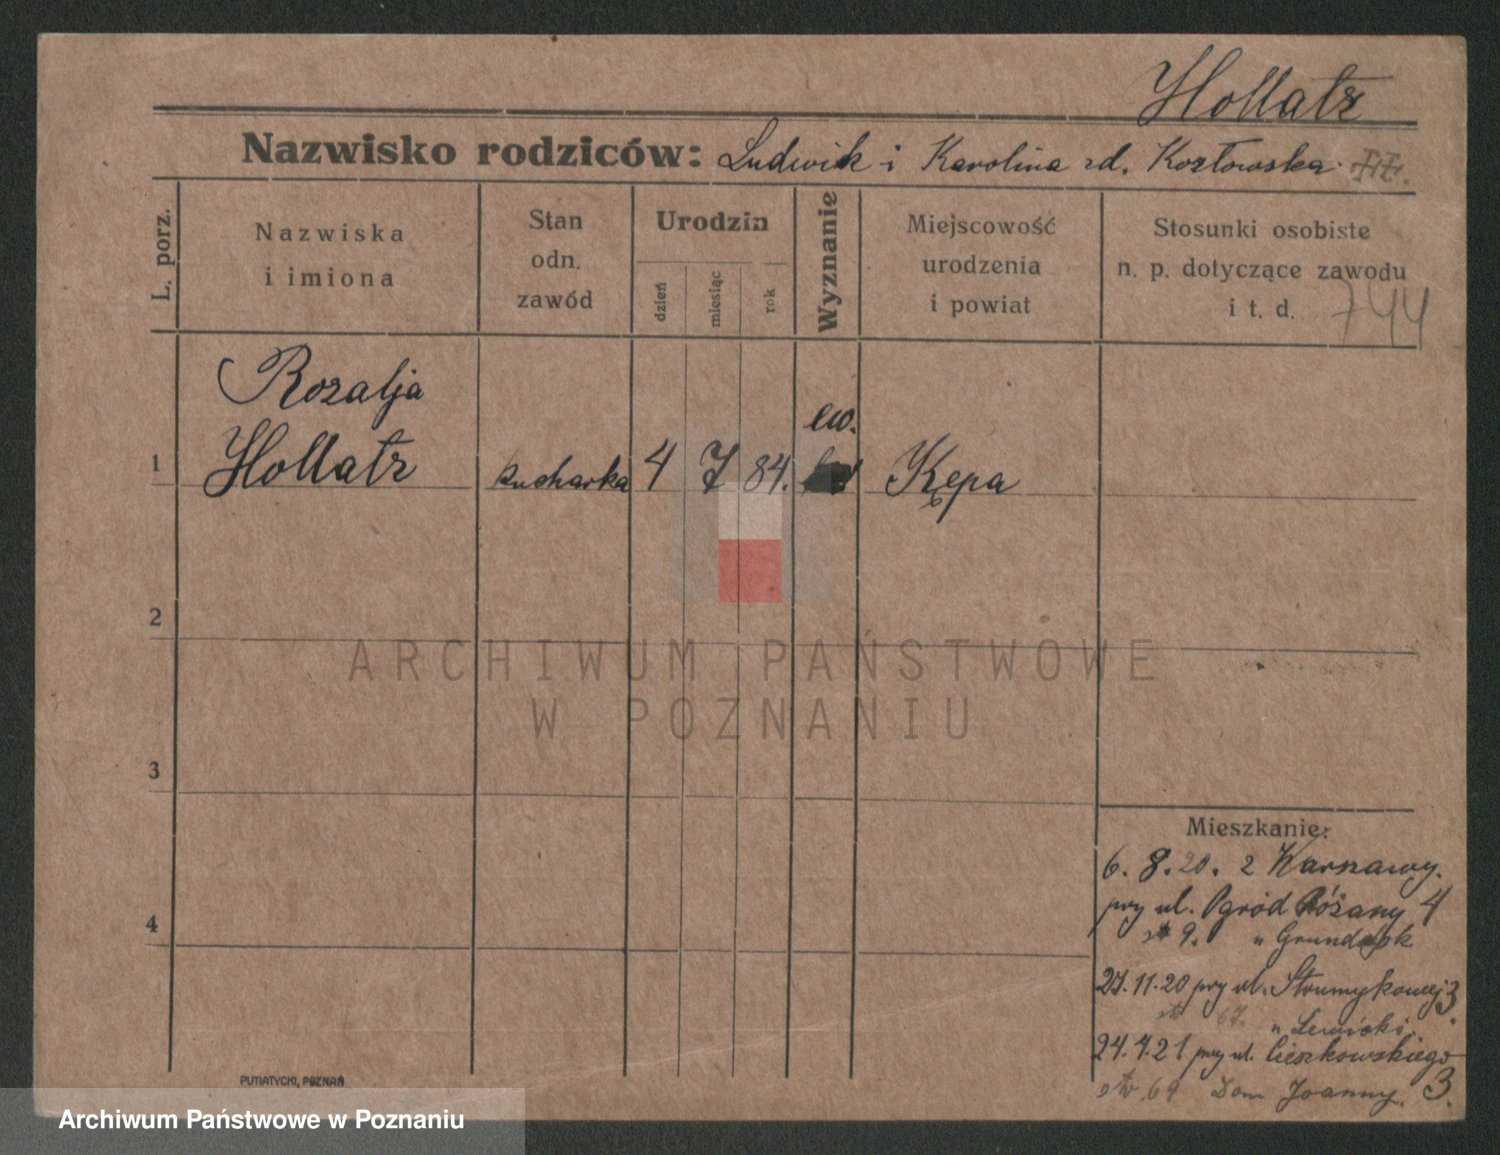 Hollatz
Nazwisko rodziców: Ludwik i Karolina zd. Kozłowska
L. porz.
Nazwiska
i imiona
Stan
odn.
zawód
Urodzin
dzień
miesiąc
rok
Wyznanie
Miejscowość
urodzenia
i powiat
Stosunki osobiste
n. p. dotyczące zawodu
i t. d.
744
1
Rozalja
Hollatz
kucharka
4
7
84.
ew.
Kępa
2
3
4
Mieszkanie:
6. 8. 20. z Warszawy.
przy ul. Ogród Różany 4
9. u
27.11.20 przy ul. Strumykowej 3.
u Lewicki
24.4.21 przy ul. Cieszkowskiego 3.
69 Dom Joanny
PUTIATYCKI, POZNAŃ
ARCHIWUM PAŃSTWOWE
W POZNANIU
Archiwum Państwowe w Poznaniu